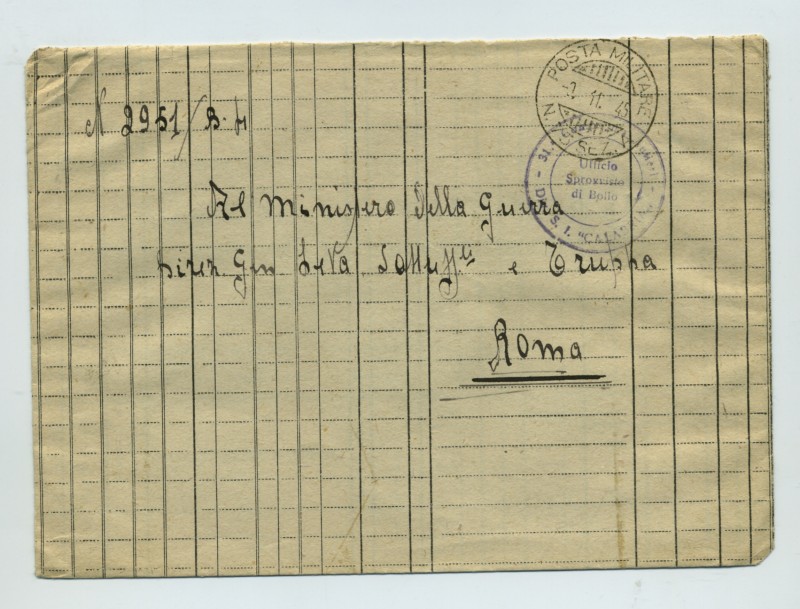 POSTA MILITARE
2. 11. 45
N 2951/B. H
Ufficio
Sprovvisto
di Bollo
Al Ministero della Guerra
Direz Gen Leva Sottuff.li e Truppa
Roma